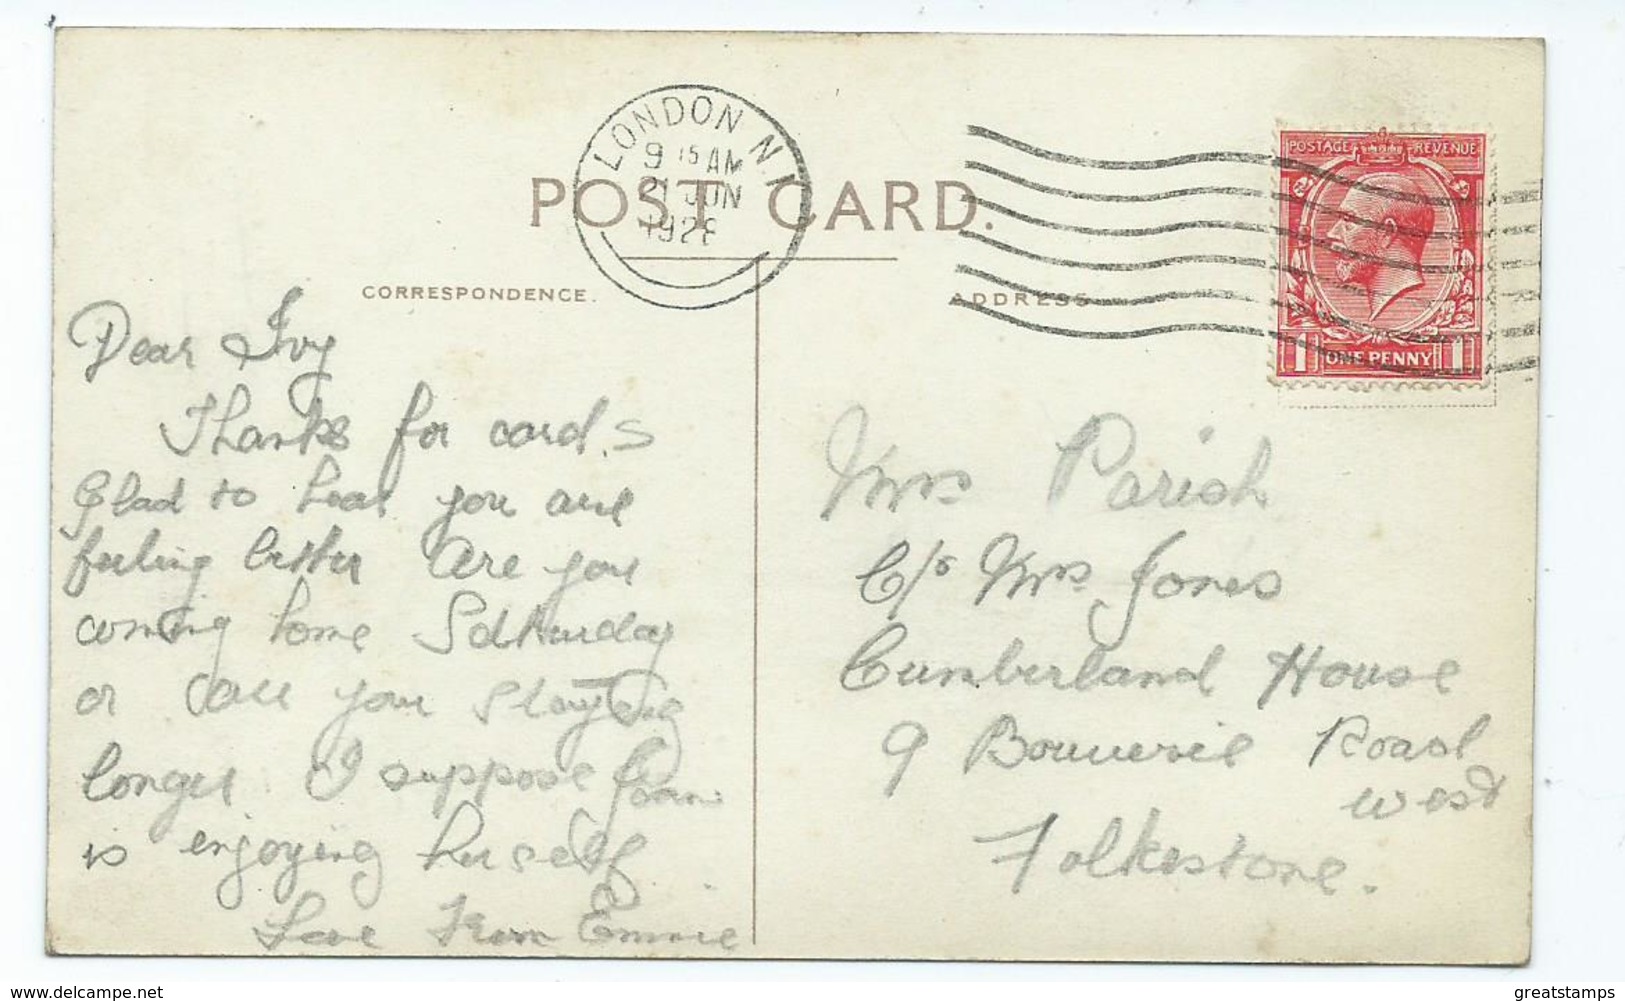 LONDON N.1
9 15 AM
21 JUN
1928
POST CARD.
POSTAGE REVENUE
ONE PENNY
1 1
CORRESPONDENCE.
ADDRESS
Dear Ivy
Thanks for card.s
Glad to hear you are
feeling better Are you
coming home Saturday
or are you staying
longer. I suppose Joan
is enjoying herself
Love From Emmie
Mrs Parish
C/o Mrs Jones
Cumberland House
9 Bouverie Road
West
Folkestone.
www.delcampe.net
greatstamps